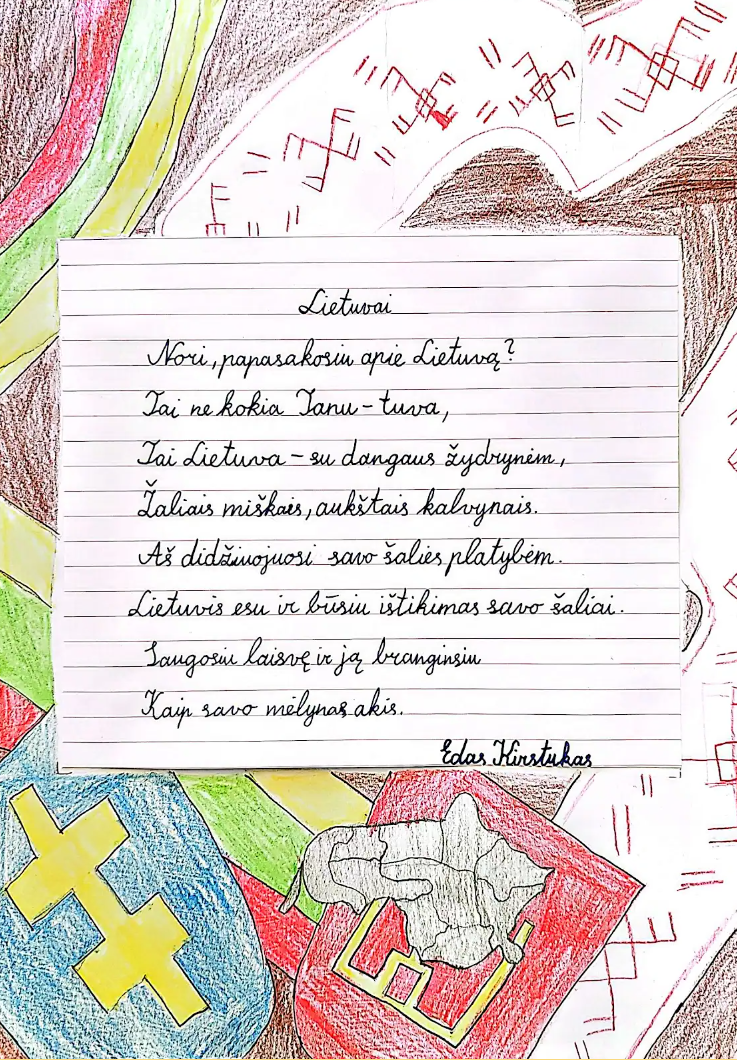 Lietuvai
Nori, papasakosiu apie Lietuvą?
Tai ne kokia Tanu-tuva,
Tai Lietuva – su dangaus žydrynėm,
Žaliais miškais, aukštais kalvynais.
Aš didžiuojuosi savo šalies platybėm.
Lietuvis esu ir būsiu ištikimas savo šaliai.
Saugosiu laisvę ir ją branginsiu
Kaip savo mėlynas akis.
Edas Kirstukas